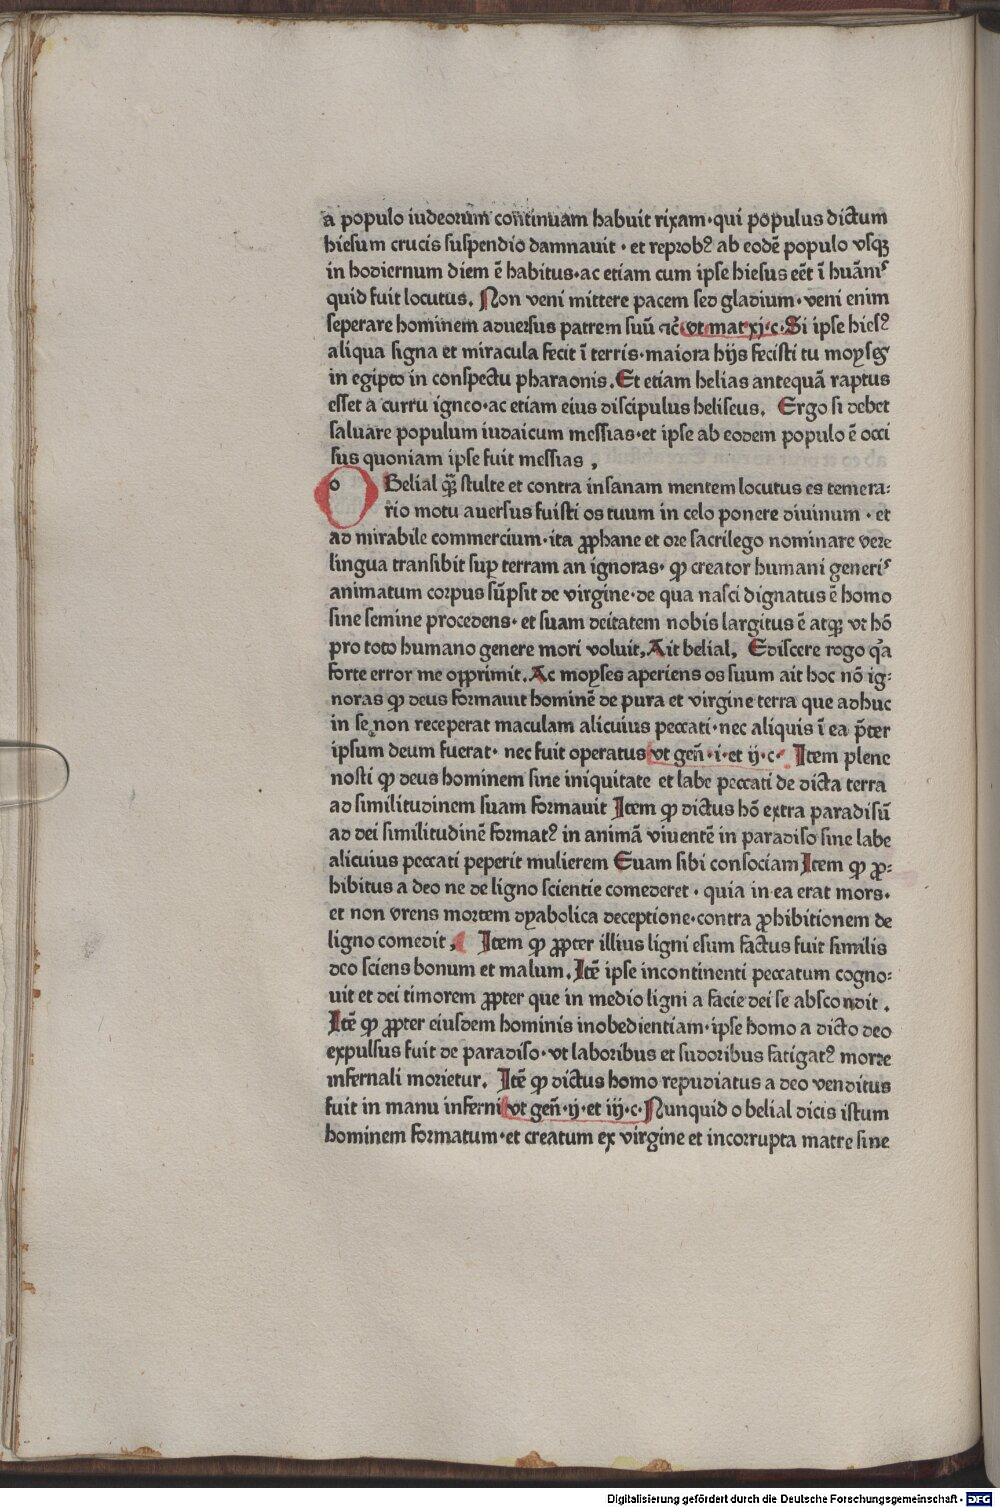 a populo iudeorum continuam habuit rixam·qui populus dictum
hiesum crucis suspendio damnauit · et reprobꝰ ab eodē populo vsqꝫ
in hodiernum diem ē habitus·ac etiam cum ipse hiesus eēt ī huāis
quid fuit locutus. Non veni mittere pacem sed gladium·veni enim
seperare hominem aduersus patrem suū ⁊c̄ vt mat xj·c·Si ipse hiesꝰ
aliqua signa et miracula fecit ī terris·maiora hijs fecisti tu moyses
in egipto in conspectu pharaonis. Et etiam helias antequā raptus
esset a curru igneo·ac etiam eius discipulus heliseus. Ergo si debet
saluare populum iudaicum messias·et ipse ab eodem populo ē occi
sus quoniam ipse fuit messias .
O Belial qꝫ̄ stulte et contra insanam mentem locutus es temera:
rio motu auersus fuisti os tuum in celo ponere diuinum · et
ad mirabile commercium·ita ꝓphane et ore sacrilego nominare vere
lingua transibit suꝑ terram an ignoras· ꝙ creator humani generis
animatum corpus sūpsit de virgine·de qua nasci dignatus ē homo
sine semine procedens· et suam deitatem nobis largitus ē atqꝫ vt hō
pro toto humano genere mori voluit, Ait belial, Ediscere rogo qa
forte error me opprimit. Ac moyses aperiens os suum ait hoc nō ig:
noras ꝙ deus formauit hominē de pura et virgine terra que adhuc
in se non receperat maculam alicuius peccati·nec aliquis ī ea p̄ter
ipsum deum fuerat· nec fuit operatus vt geñ·i·et ij·c· Item plene
nosti ꝙ deus hominem sine iniquitate et labe peccati de dicta terra
ad similitudinem suam formauit Item ꝙ dictus hō extra paradisū
ad dei similitudinē formatꝰ in animā viuentē in paradiso sine labe
alicuius peccati peperit mulierem Euam sibi consociam Item ꝙ ꝓ:
hibitus a deo ne de ligno scientie comederet · quia in ea erat mors·
et non vrens mortem dyabolica deceptione·contra ꝓhibitionem de
ligno comedit , Item ꝙ ꝓpter illius ligni esum factus fuit similis
deo sciens bonum et malum. Itē ipse incontinenti peccatum cogno:
uit et dei timorem ꝓpter que in medio ligni a facie dei se abscondit .
Itē ꝙ ꝓpter eiusdem hominis inobedientiam·ipse homo a dicto deo
expulsus fuit de paradiso·vt laboribus et sudoribus fatigatꝰ morte
infernali morietur. Itē ꝙ dictus homo repudiatus a deo venditus
fuit in manu inferni vt geñ·ij·et iij·c·Nunquid o belial dicis istum
hominem formatum·et creatum ex virgine et incorrupta matre sine
Digitalisierung gefördert durch die Deutsche Forschungsgemeinschaft · DFG